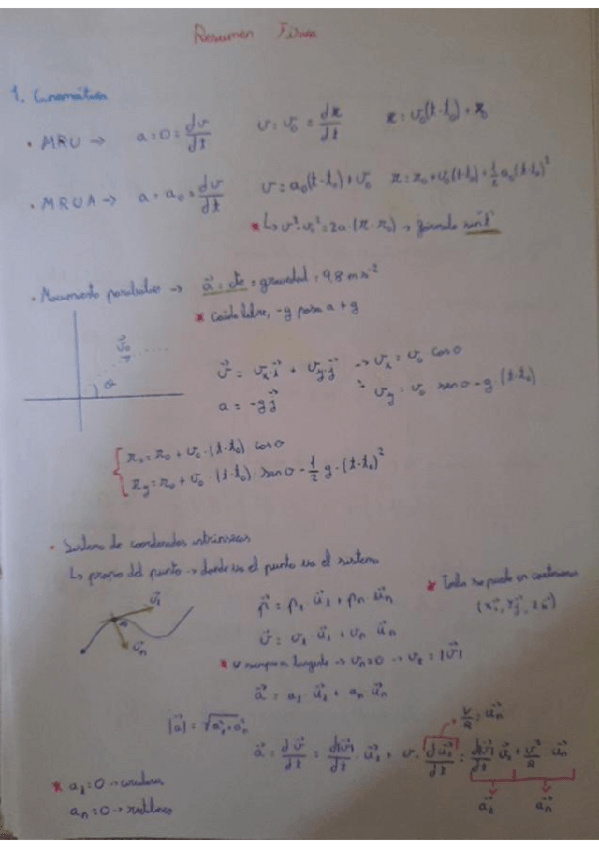 Resumen Física
1. Cinemática
• MRU → a = 0 = dv/dt v = v₀ = dx/dt x = v₀(t-t₀) + x₀
• MRUA → a = a₀ = dv/dt v = a₀(t-t₀) + v₀ x = x₀ + v₀(t-t₀) + 1/2 a₀(t-t₀)²
* ↳ v² - v₀² = 2a·(x-x₀) → fórmula sin t
• Movimiento parabólico → a⃗ = cte = gravedad = 9,8 m s⁻²
* Caída libre, -g pasa a +g
v⃗₀
v⃗ = vₓ·i⃗ + v_y·j⃗ → vₓ = v₀ cos θ
a = -g j⃗ v_y = v₀ sen θ - g·(t-t₀)
xₓ = x₀ + v₀·(t-t₀) cos θ
x_y = x₀ + v₀·(t-t₀)·sen θ - 1/2 g·(t-t₀)²
• Sistema de coordenadas intrínsecas
↳ propio del punto → donde va el punto va el sistema
* Todo se puede en
p⃗ = pₜ·u⃗ₜ + pₙ·u⃗ₙ
v⃗ = vₜ·u⃗ₜ + vₙ u⃗ₙ
* v siempre tangente → vₙ = 0 → vₜ = |v⃗|
a⃗ = aₜ·u⃗ₜ + aₙ u⃗ₙ
|a⃗| = √(aₜ² + aₙ²)
a⃗ = dv⃗/dt = d|v⃗|/dt · u⃗ₜ + v · du⃗ₜ/dt = d|v⃗|/dt u⃗ₜ + v²/R u⃗ₙ
a⃗ₜ a⃗ₙ
* aₜ = 0 →
aₙ = 0 → rectilíneo